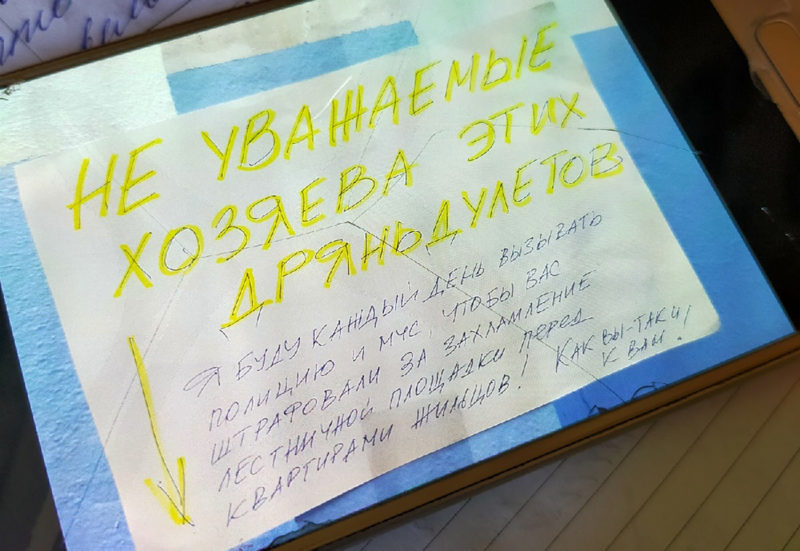 НЕ УВАЖАЕМЫЕ
ХОЗЯЕВА ЭТИХ
ДРЯНЬДУЛЕТОВ
Я БУДУ КАЖДЫЙ ДЕНЬ ВЫЗЫВАТЬ
ПОЛИЦИЮ И МЧС, ЧТОБЫ ВАС
ШТРАФОВАЛИ ЗА ЗАХЛАМЛЕНИЕ
ЛЕСТНИЧНОЙ ПЛОЩАДКИ ПЕРЕД
КВАРТИРАМИ ЖИЛЬЦОВ! КАК ВЫ-ТАК И
К ВАМ!